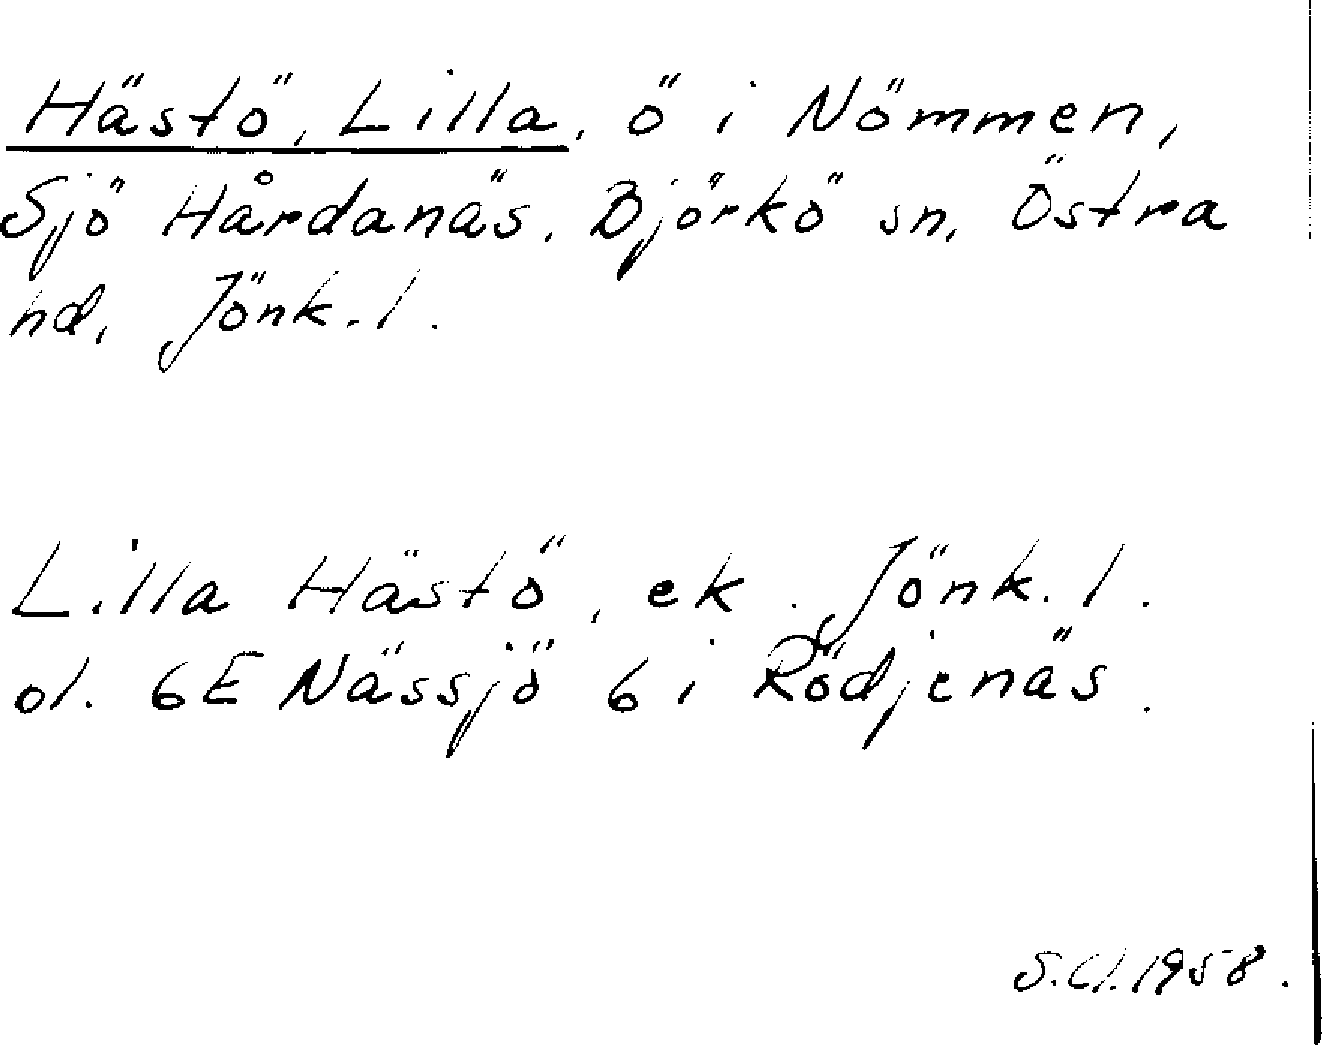 Hästö, Lilla, ö i Nömmen,
Sjö Hårdanäs, Björkö sn, Östra
hd, Jönk.l.
Lilla Hästö, ek. Jönk.l.
bl. 6E Nässjö 6 i Rödjenäs.
S.Cl. 1958.